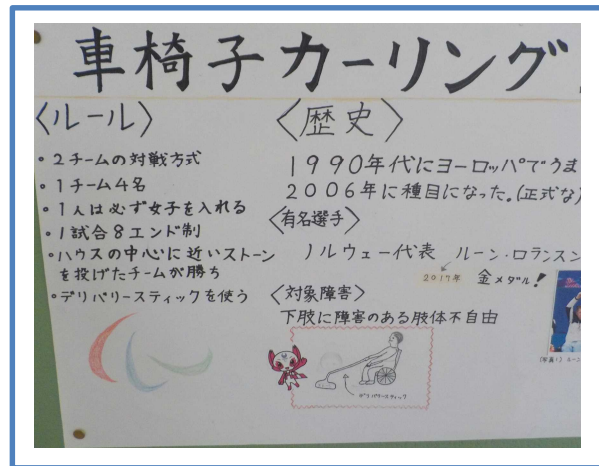 車椅子カーリング
〈ルール〉
・2チームの対戦方式
・1チーム4名
・1人は必ず女子を入れる
・1試合8エンド制
・ハウスの中心に近いストーン
を投げたチームが勝ち
・デリバリースティックを使う
〈歴史〉
1990年代にヨーロッパでうま
2006年に種目になった.(正式な)
〈有名選手〉
ノルウェー代表 ルーン・ロランスン
2017年 金メダル!
〈対象障害〉
下肢に障害のある肢体不自由
デリバリースティック
(写真1)